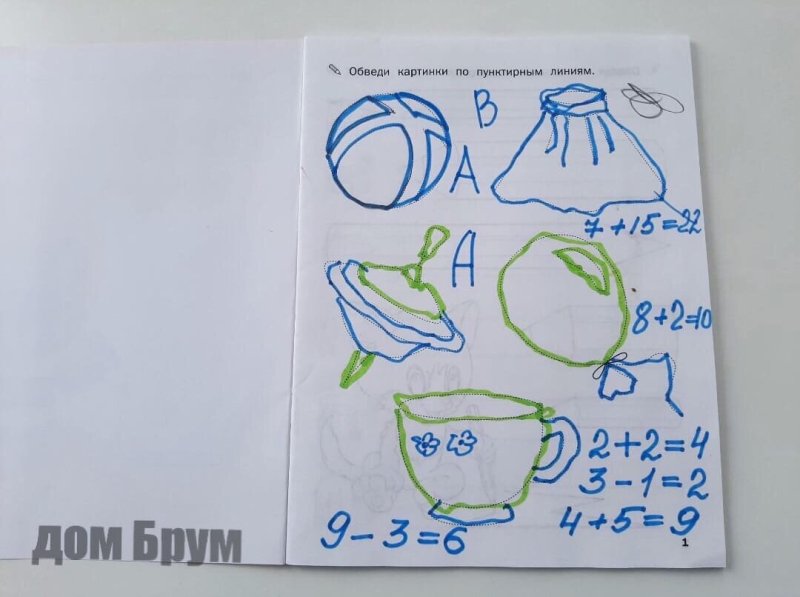 Обведи картинки по пунктирным линиям.
В
А
7+15=22
А
8+2=10
2+2=4
3-1=2
4+5=9
9-3=6
1
дом Брум